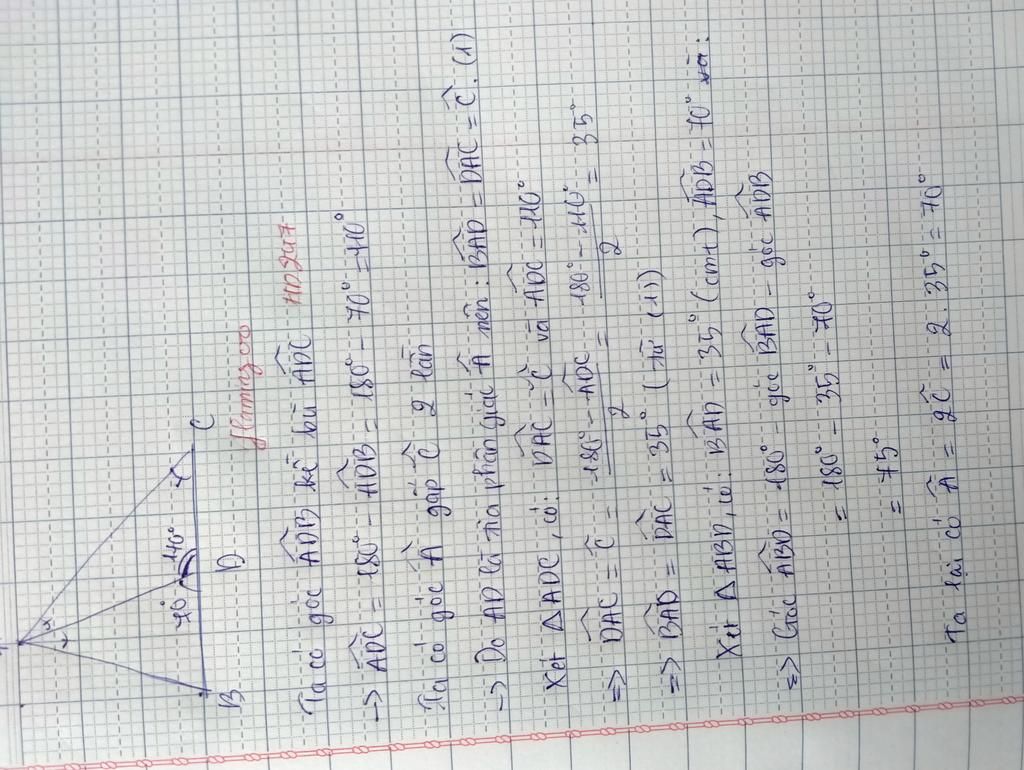 70° 110°
B D C
Hamingoo HD247
Ta có góc ADB kề bù ADC
-> ADC = 180° - ADB = 180° - 70° = 110°
Ta có góc Â gấp Ĉ 2 lần
-> Do AD là tia phân giác Â nên: BAD = DAC = Ĉ. (1)
Xét △ADC, có: DAC = Ĉ và ADC = 110°
=> DAC = Ĉ = (180° - ADC)/2 = (180° - 110°)/2 = 35°
=> BAD = DAC = 35° (từ (1))
Xét △ABD, có: BAD = 35° (cmt), ADB = 70°
=> Góc ABD = 180° - góc BAD - góc ADB
= 180° - 35° - 70°
= 75°
Ta lại có Â = 2Ĉ = 2.35° = 70°